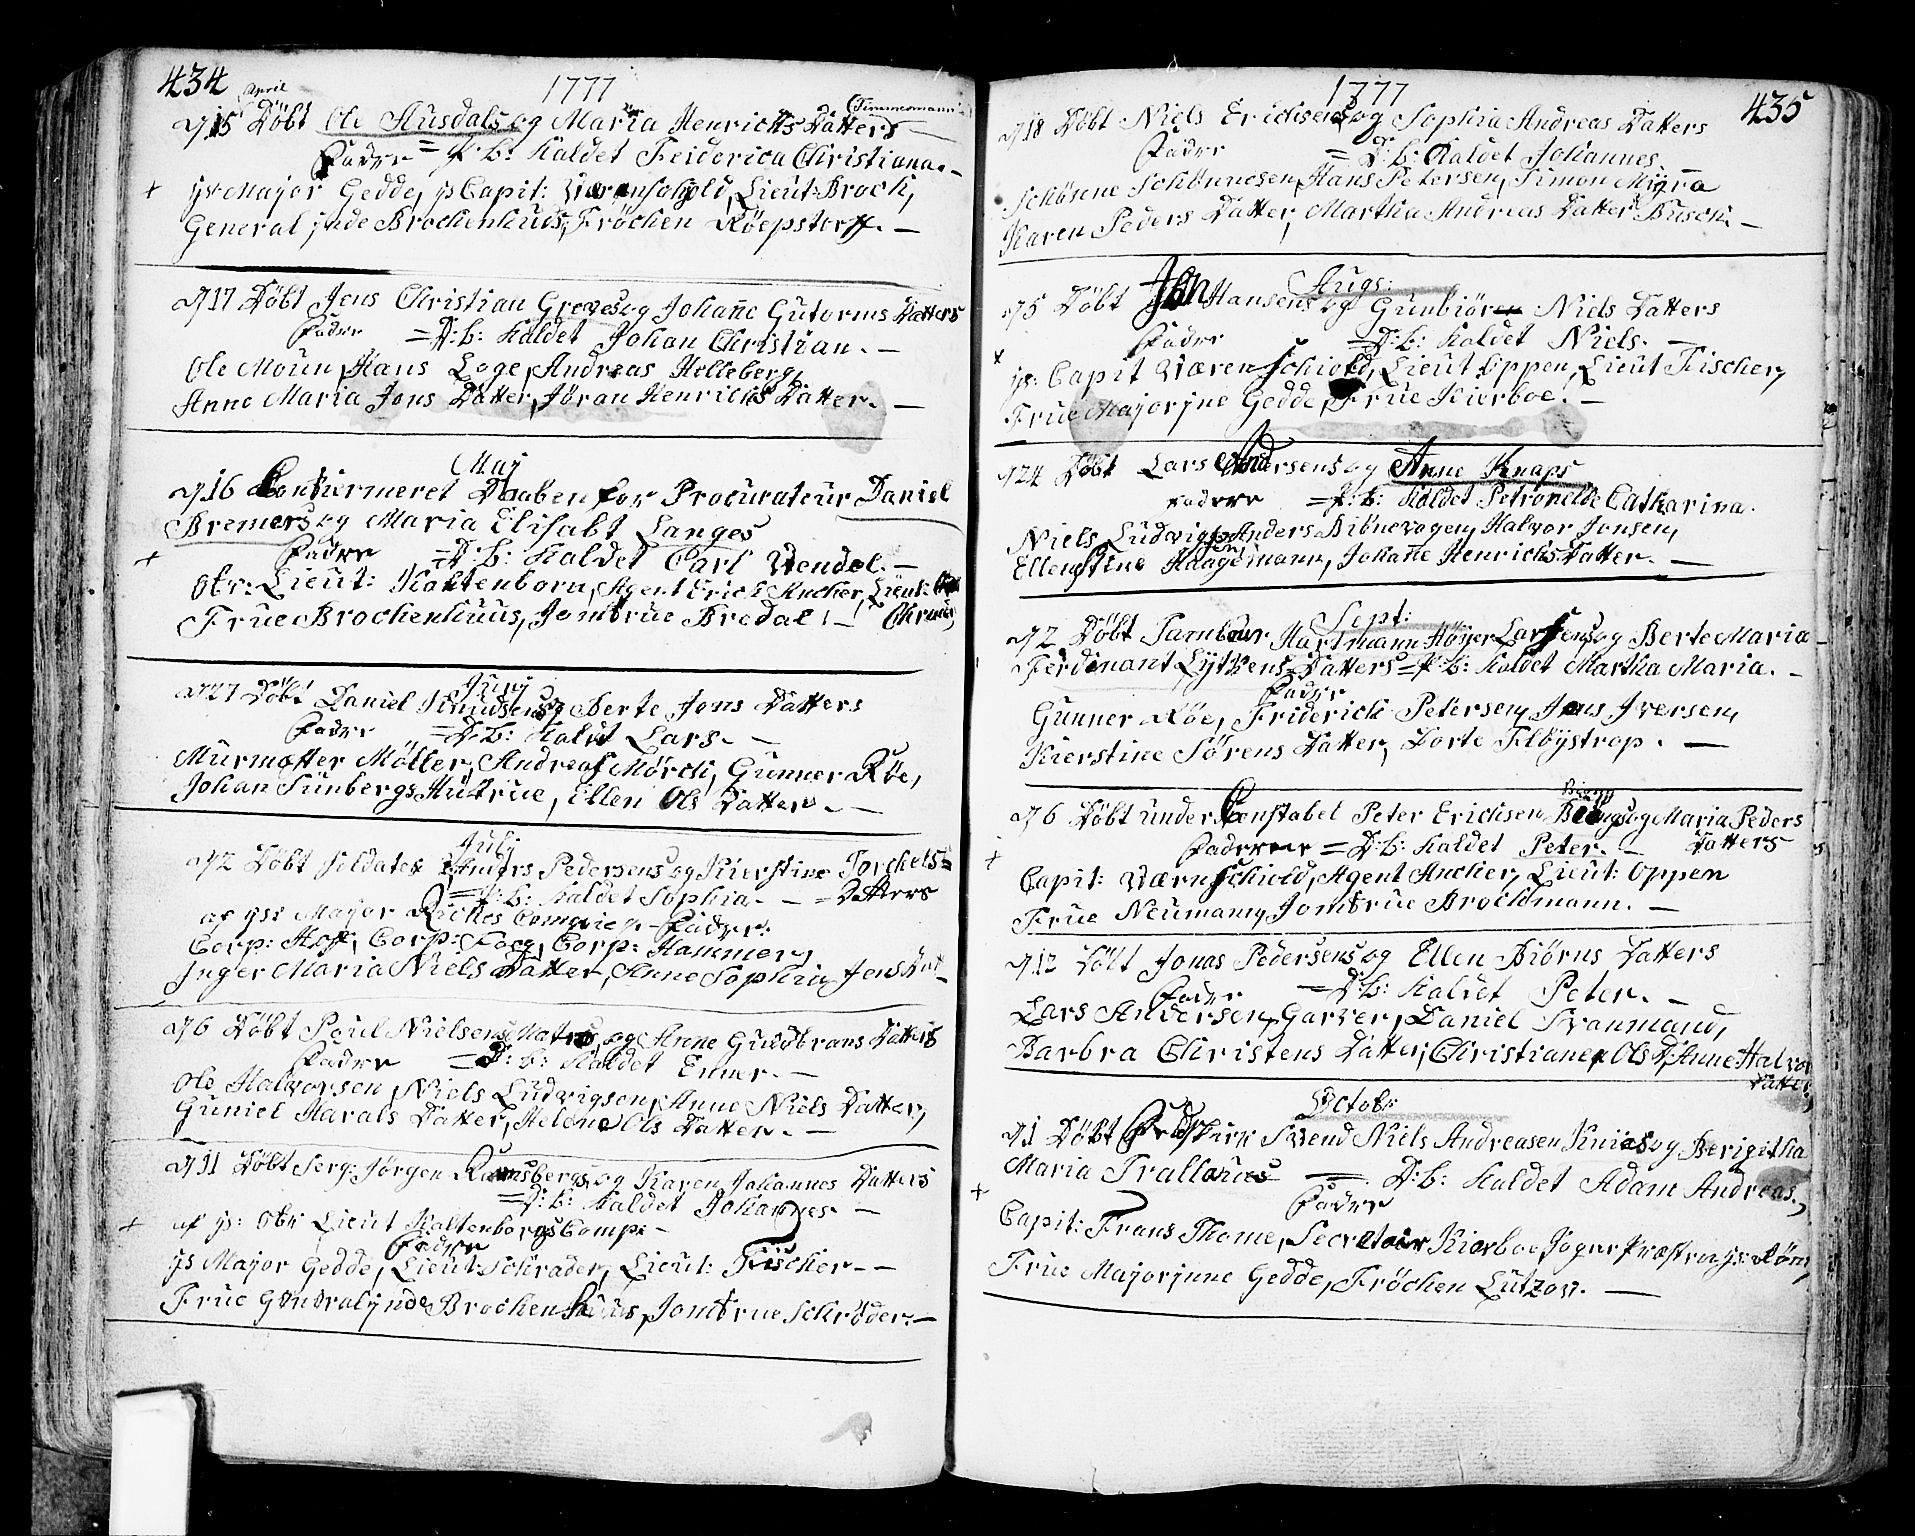 434
April
1777
(Timmermann
d 15 Döbt Ole Husdals og Maria Henrichs Datters
Faddre = P: b: Kaldet Feiderica Christiana. -
+ Hr Major Gedde, Hr Capit:Værenschold, Lieut: Broch,
General inde Brochenhuus, Fröchen Röepstorff. -
d 17 Döbt Jens Christian Greves og Johañe Gutorms Datters
Faddre = D: b: Kaldet Johan Christian. -
Ole Moün, Hans Loge, Andreas Helleberg,
Anne Maria Jens Datter, Jöran Henrichs Datter. -
Maj
d 16 Confirmeret Daaben for Procurateur Daniel
Bremers og Maria Elisabt Langes
Faddre = D: b: Kaldet Carl Wendel. -
+ Obr: Lieut: Kaltenborn, Agent Erich Ancher, Lieut:
Frue Brochenhuus, Jomfrue Bredal. -
Junj
d 27 Döbt Daniel Knudsens og Berte Jens Datters
Faddre = D: b: Kaldt Lars. -
Murmester Möller, Andreas Mörch, Gunner Röe,
Johan Sünbergs Hustrue, Ellen Ols Datter. -
July
d 2 Döbt Soldaten Anders Pedersens og Kierstine Torchels=
= P: b: Kaldet Sophia. - = Datters
af Hr Major Compagnie - Faddre:
Corp: Hoff, Corp: Foeg, Corp: Hammer,
Inger Maria Niels Datter, Anne Sophia Jens Dat -
d 6 Döbt Poul Nielsens Matros og Anne Guldbrans Datters
Faddre = D: b: Kaldet Enner. -
Ole Halvorsen, Niels Ludvigsen, Anne Niels Datter,
Guniel Harals Datter, Helene Ols Datter. -
d 11 Döbt Serg: Jörgen Ramsbergs og Karen Johannes Datters
= D: b: Kaldet Johannes -
+ af Hr: Obr Lieut Kaltenborns Comp: -
Faddre
Hr Major Gedde, Lieut: Schrader, Lieut: Fischer - -
Frue Generalinde Brochenhuus, Jomfrue Schröder. -
435
1777
d 18 Döbt Niels Erichsens og Sophia Andreas Datters
Faddre = D: b: Kaldet Johannes.
Schönne Schönnesen, Hans Petersen, Simon
Karen Peders Datter, Martha Andreas Datter Busch. -
Augs:
d 5 Döbt Jon Hansens og Gunbiören Niels Datters
Faddre = D: b: Kaldet Niels. -
+ Hr: Capit Værenschiold, Lieut Oppen, Lieut Fischer,
Frue Majorine Gedde, Frue Kierboe. -
d 24 Döbt Lars Andersens og Anne Knaps
Faddre = P: b: Kaldet Petronelle Catharina.
Niels Ludvigsen, Anders Halvor Jonsen,
Ellen Stine Haagemann, Johañe Henrichs Datter. -
Sept:
d 2 Döbt Tambour Hartmann Höyer Larsens og Berte Maria
Ferdinant Lythens Datters = P: b: Kaldet Martha Maria. -
Faddre
Gunner Röe, Friderich Petersen, Jens Iversen,
Kierstine Sörens Datter, Dorte Flöystrop. -
d 6 Döbt under Constabel Peter Erichsen og Maria Peders
Datters
Faddrene = D: b: Kaldet Peter. -
+ Capit: Værnschiold, Agent Ancher, Lieut: Oppen
Frue Neumann, Jomfrue Brochmann. -
d 12 Döbt Jonas Pedersens og Ellen Biörns Datters
Faddre = D: b: Kaldet Peter. -
Lars Andersen, Garver, Daniel Svanmand,
Barbra Christens Datter, Christiane Ols D, Anne Halvor
Datter,
Octobr
d 1 Döbt Svend Niels Andreasen Knies og Berigitha
Maria = D: b: Kaldet Adam Andreas.
Faddre
+ Capit: Frans Thome, Secretair Kierboe,
Frue Majorinne Gedde, Fröchen Lützow. -